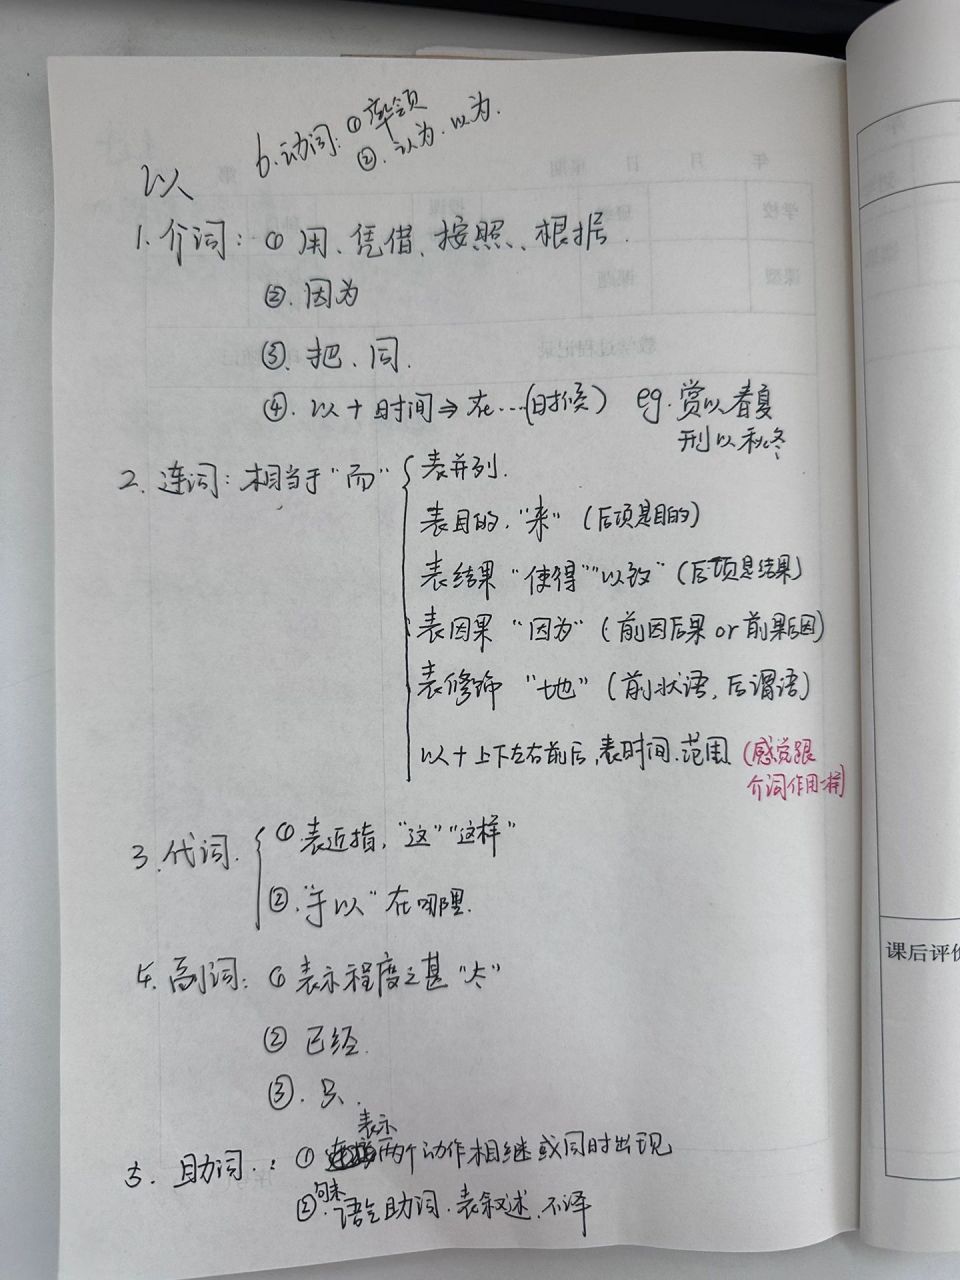 6.动词：①率领
②.认为.以为.
以
1.介词：①用、凭借、按照、根据.
②.因为
③.把、同.
④.以+时间⇒在…(时候) eg.赏以春夏
刑以秋冬
2.连词：相当于"而" 表并列.
表目的."来"(后项是目的)
表结果"使得""以致"(后项是结果)
表因果"因为"(前因后果or前果后因)
表修饰"地"(前状语,后谓语)
以+上下左右前后,表时间.范围 (感觉跟
介词作用一样)
3.代词. ①表近指,"这""这样"
②."于以"在哪里.
4.副词：①表示程度之甚"太"
②已经.
③.只.
表示
5.助词.：①两个动作相继或同时出现
句末
②.语气助词.表叙述.不译
年 月 日 星期 第
学校
课题
教学过程记录
课后评价